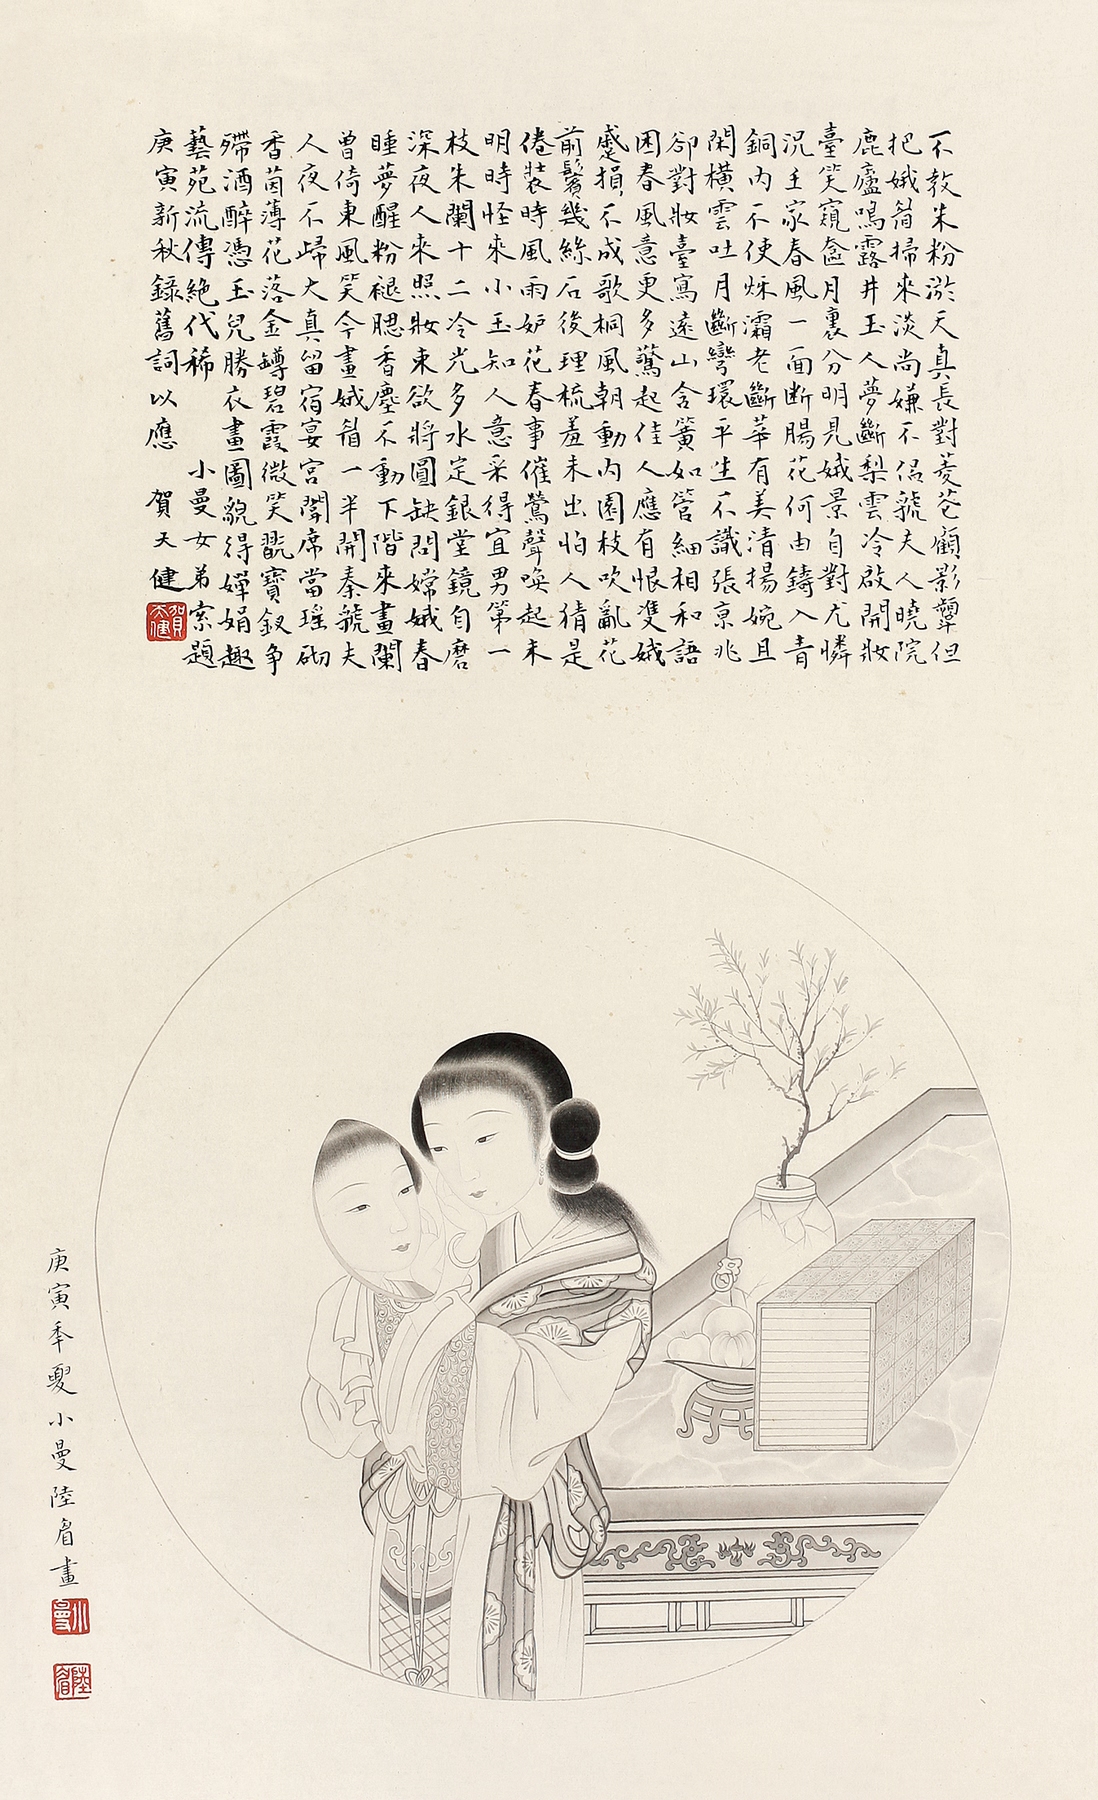 不教朱粉涴天真長對菱花顧影顰但
把娥眉掃來淡尚嫌不侣虢夫人曉院
鹿廬鳴露井玉人夢斷梨雲冷啟開妝
臺笑窺奩月裏分明見娥景自對尤憐
況玉家春風一面断腸花何由鑄入青
銅內不使妖灞老斷華有美清揚婉且
閑橫雲吐月斷彎環平生不識張京兆
卻對妝臺寫遠山含簧如管細相和語
困春風意更多驚起佳人應有恨雙娥
蹙損不成歌桐風朝動內園枝吹亂花
前鬢幾絲石後理梳羞未出怕人猜是
倦裝時風雨妒花春事催鶯聲喚起未
明時怪來小玉知人意采得宜男第一
枝朱闌十二冷光多水定銀堂鏡自磨
深夜人來照妝束欲將圓缺問嫦娥春
睡夢醒粉褪腮香塵不動下階來畫闌
曾倚東風笑今畫娥眉一半開秦虢夫
人夜不歸大真留宿宴宮闈席當瑤砌
香茵薄花落金罇碧霞微笑翫寶釵爭
殢酒醉憑玉兒勝衣畫圖貌得嬋娟趣
藝苑流傳絕代稀 小曼女弟索題
庚寅新秋録舊詞以應 賀天健
賀天健
庚寅季夏小曼陸眉畫
小曼
陸眉